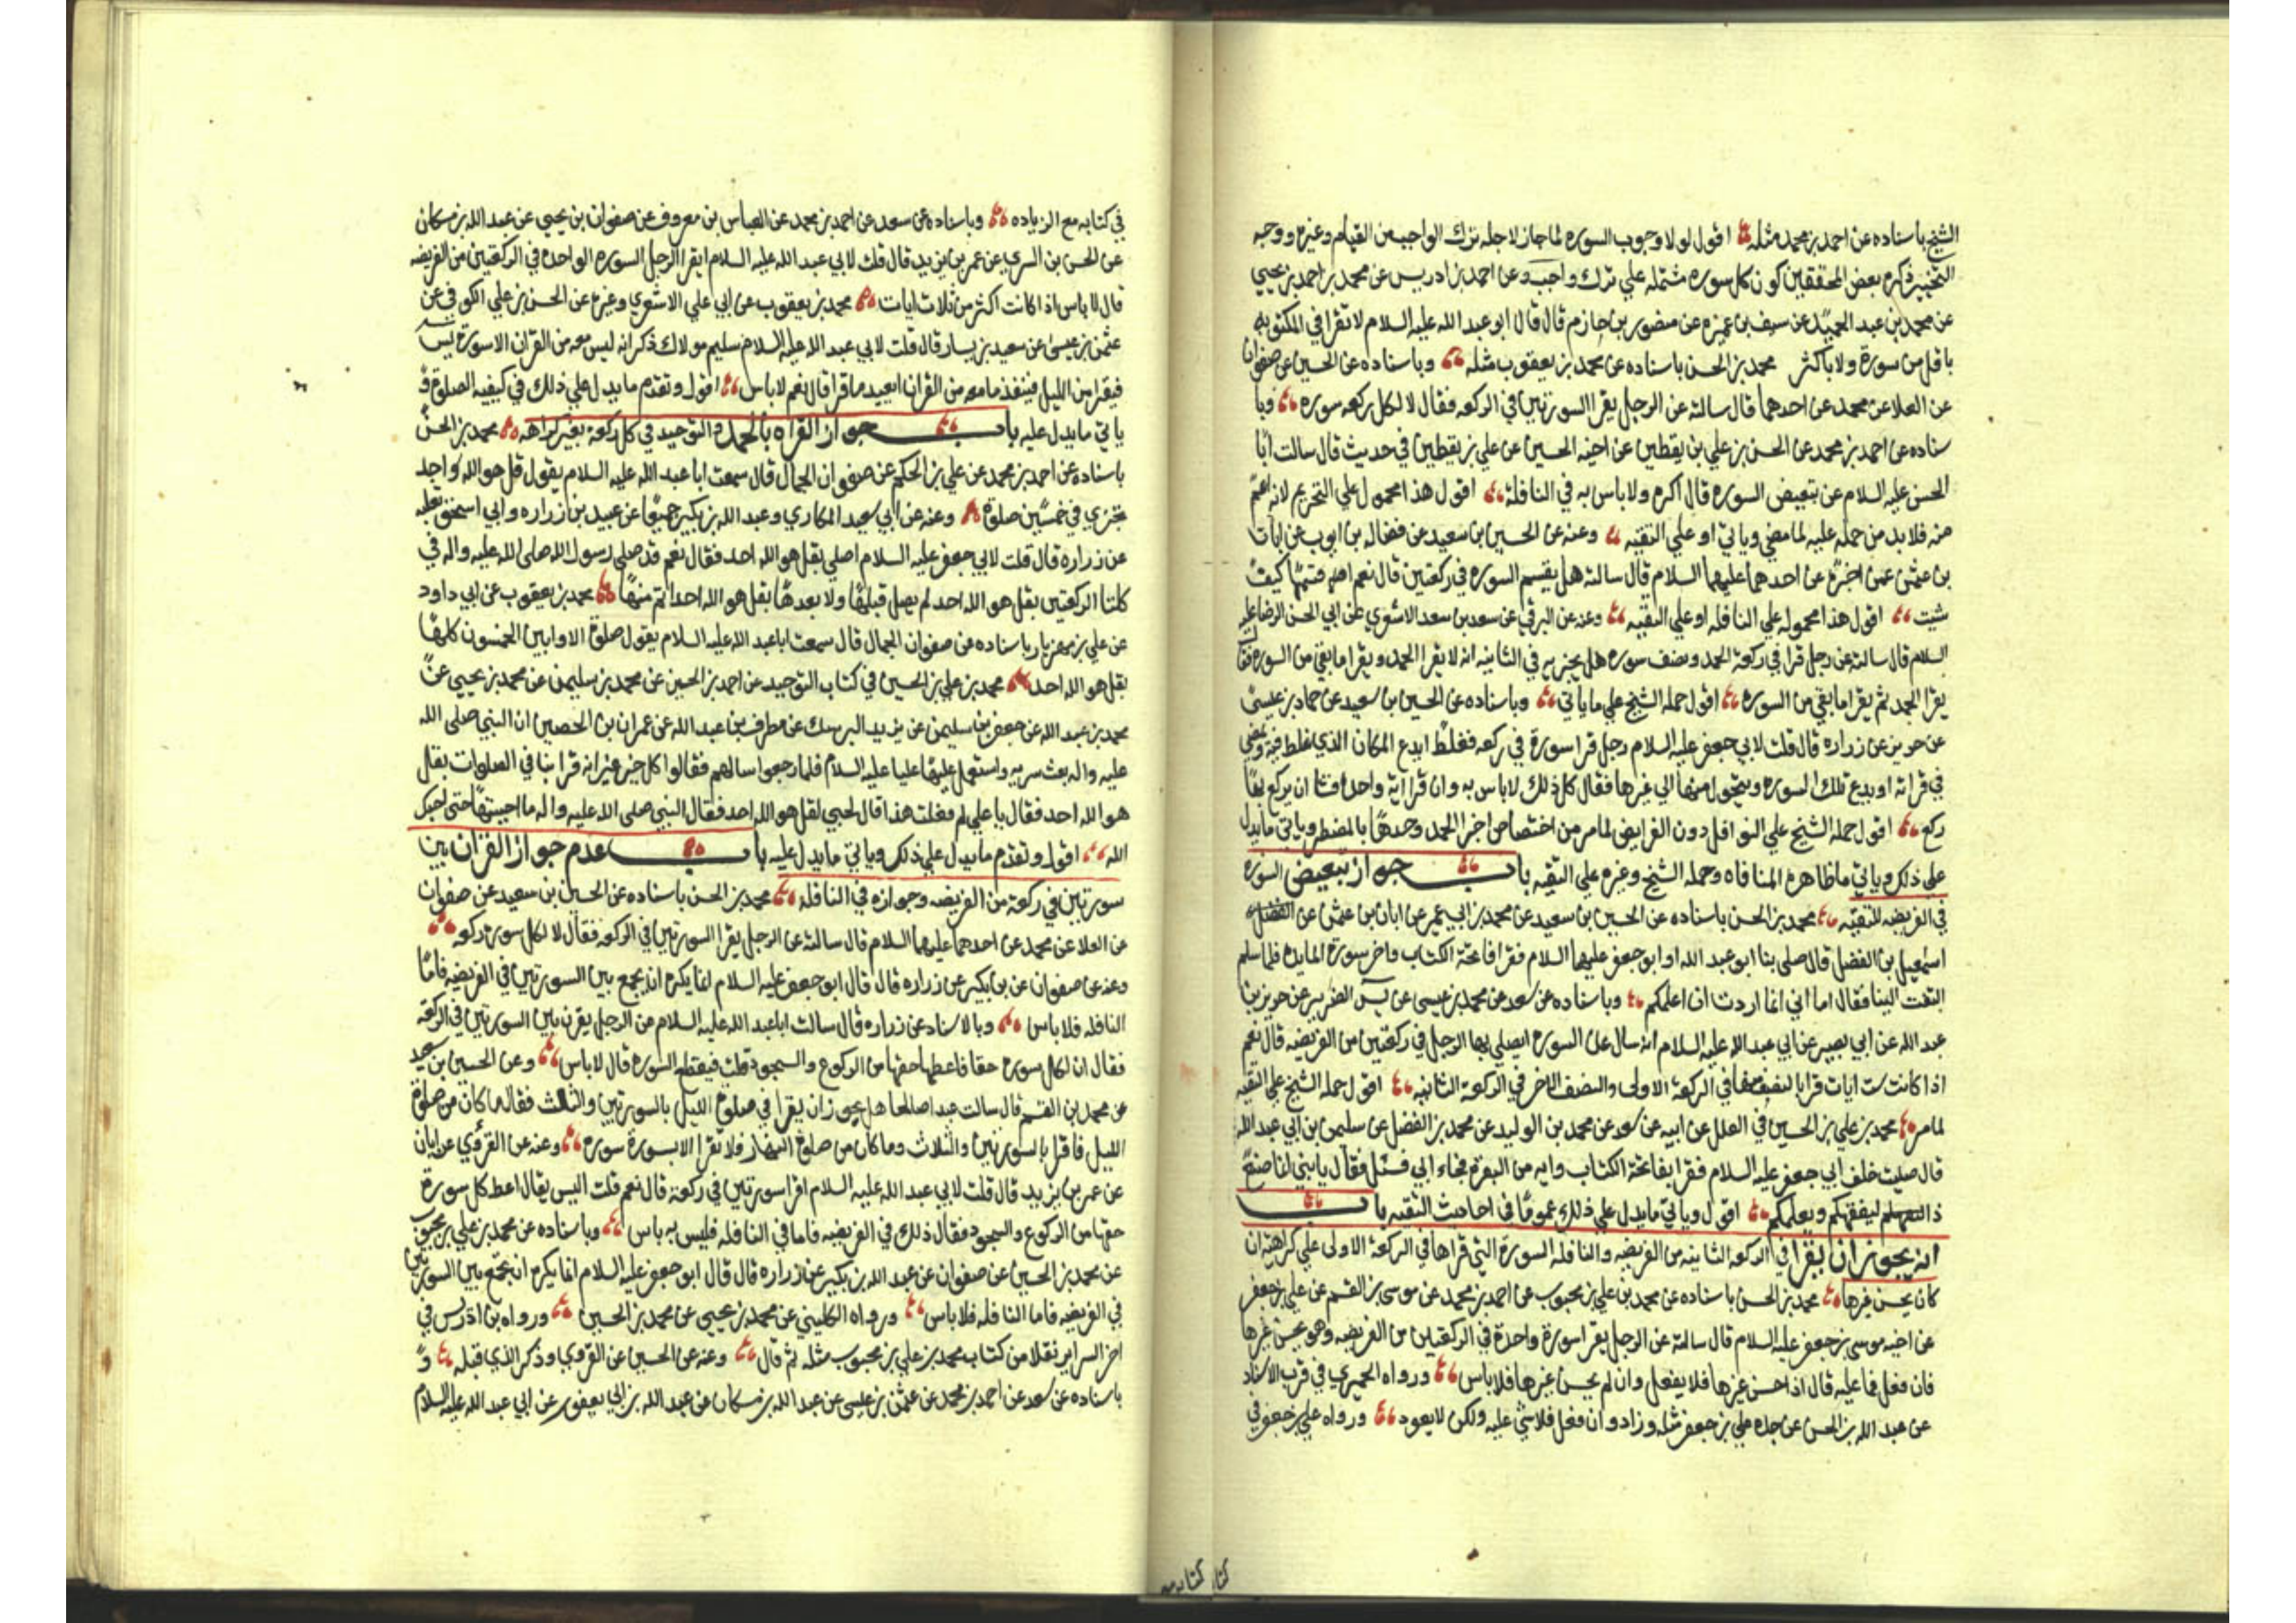 الشيخ باسناده عن احمد بن محمد مثله اقول لولا وجوب السوره لما جاز لاجله ترك الواجب من القيام وغيره ووجه
التخيير ذكره بعض المحققين كون كل سوره مشتمله علي ترك واجب وعن احمد بن ادريس عن محمد بن احمد بن يحيي
عن محمد بن عبد الحميد عن سيف بن عميره عن منصور بن حازم قال قال ابو عبد الله عليه السلام لا تقرا في المكتوبه
باقل من سورة ولا باكثر محمد بن الحسن باسناده عن محمد بن يعقوب مثله وباسناده عن الحسين عن صفوان
عن العلا عن محمد عن احدهما قال سالته عن الرجل يقرا السورتين في الركعه فقال لا لكل ركعه سوره وبا
سناده عن احمد بن محمد عن الحسن بن علي بن يقطين عن اخيه الحسين عن علي بن يقطين في حديث قال سالت ابا
الحسن عليه السلام عن تبعيض السوره قال اكره ولا باس به في النافلة اقول هذا محمول علي التحريم لانه اعم
منه فلا بد من حمله عليه لما مضي وياتي او علي التقيه وعنه عن الحسين بن سعيد عن فضاله بن ايوب عن ابان
بن عثمن عمن اخبره عن احدهما عليهما السلام قال سالته هل يقسم السوره في ركعتين قال نعم اقسمها كيف
شيت اقول هذا محموله علي النافله او علي التقيه وعنه عن البرقي عن سعد بن سعد الاشعري عن ابي الحسن الرضا عليه
السلام قال سالته عن رجل قرا في ركعة الحمد ونصف سوره هل يجزيه في الثانيه انه لا يقرا الحمد ويقرا ما بقي من السوره فقال
يقرا الحمد ثم يقرا ما بقي من السوره اقول حمله الشيخ علي ما ياتي وباسناده عن الحسين بن سعيد عن حماد بن عيسي
عن حريز عن زراره قال قلت لابي جعفر عليه السلام رجل قرا سورة في ركعه فغلط ايدع المكان الذي غلط فيه ويمضي
في قراته او يدع تلك السوره ويتحول منها الي غيرها فقال كل ذلك لا باس به وان قرا اية واحدة فشا ان يركع بها
ركع اقول حمله الشيخ علي النوافل دون الفرايض لما مر من اختصاص اجزا الحمد وحدها بالمضطر وياتي ما يدل
علي ذلك وياتي ما ظاهره المنافاه وحمله الشيخ وغيره علي التقيه باب جواز تبعيض السوره
في الفريضه للتقيه محمد بن الحسن باسناده عن الحسين بن سعيد عن محمد بن ابي عمير عن ابان بن عثمن عن
اسمعيل بن الفضل قال صلي بنا ابو عبد الله او ابو جعفر عليهما السلام فقرا فاتحة الكتاب واخر سورة المايده فلما سلم
التفت الينا فقال اما اني انما اردت ان اعلمكم وباسناده عن سعد عن محمد بن عيسي عن يس الضرير عن حريز بن
عبد الله عن ابي بصير عن ابي عبد الله عليه السلام انه سال عن السوره ايصلي بها الرجل في ركعتين من الفريضه قال نعم
اذا كانت ست ايات قرا بالنصف منها في الركعة الاولي والنصف الاخر في الركعة الثانيه اقول حمله الشيخ علي التقيه
لما مر محمد بن علي بن الحسين في العلل عن ابيه عن سعد عن محمد بن الوليد عن محمد بن الفضل عن سليمن بن ابي عبد الله
قال صليت خلف ابي جعفر عليه السلام فقرا بفاتحة الكتاب وايه من البقره فجاء ابي فسئل فقال يا بني انما صنع
ذا ليفقهكم ويعلمكم اقول وياتي ما يدل علي ذلك عموما في احاديث التقيه باب
انه يجوز ان يقرا في الركعه الثانيه من الفريضه والنافله السورة التي قراها في الركعة الاولي علي كراهية ان
كان يحسن غيرها محمد بن الحسن باسناده عن محمد بن علي بن محبوب عن احمد بن محمد عن موسي بن القسم عن علي بن جعفر
عن اخيه موسي بن جعفر عليه السلام قال سالته عن الرجل يقرا سورة واحدة في الركعتين من الفريضه وهو يحسن غيرها
فان فعل فما عليه قال اذا احسن غيرها فلا يفعل وان لم يحسن غيرها فلا باس ورواه الحميري في قرب الاسناد
عن عبد الله بن الحسن عن جده علي بن جعفر مثله وزاد وان فعل فلا شي عليه ولكن لا يعود ورواه علي بن جعفر في
كتابه مع
في كتابه مع الزياده وباسناده عن سعد عن احمد بن محمد عن العباس بن معروف عن صفوان بن يحيي عن عبد الله بن مسكان
عن الحسن بن السري عن عمر بن يزيد قال قلت لابي عبد الله عليه السلام ايقرا الرجل السوره الواحده في الركعتين من الفريضه
قال لا باس اذا كانت اكثر من ثلاث ايات محمد بن يعقوب عن ابي علي الاشعري وغيره عن الحسن بن علي الكوفي عن
عثمن بن عيسي عن سعيد بن يسار قال قلت لابي عبد الله عليه السلام سليم مولاك ذكر انه ليس معه من القران الا سورة يس
فيقوم من الليل فينفد ما معه من القران ايعيد ما قرا قال نعم لا باس اقول وتقدم ما يدل علي ذلك في كيفيه الصلوة و
ياتي ما يدل عليه باب جواز القراه بالحمد و التوحيد في كل ركعة بغير كراهه محمد بن الحسن
باسناده عن احمد بن محمد عن علي بن الحكم عن صفوان الجمال قال سمعت ابا عبد الله عليه السلام يقول قل هو الله احد
تجزي في خمسين صلوة وعنه عن ابي سعيد المكاري وعبد الله بن بكير جميعا عن عبيد بن زراره وابي اسحق ثعلبه
عن زراره قال قلت لابي جعفر عليه السلام اصلي بقل هو الله احد فقال نعم قد صلي رسول الله صلي الله عليه واله في
كلتا الركعتين بقل هو الله احد لم يصل قبلها ولا بعدها بقل هو الله احد اتم منها محمد بن يعقوب عن ابي داود
عن علي بن مهزيار باسناده عن صفوان الجمال قال سمعت ابا عبد الله عليه السلام يقول صلوة الاوابين الخمسون كلها
بقل هو الله احد محمد بن علي بن الحسين في كتاب التوحيد عن احمد بن الحسين عن محمد بن سليمن عن محمد بن يحيي عن
محمد بن عبد الله عن جعفر بن سليمن عن يزيد الرشك عن مطرف بن عبد الله عن عمران بن الحصين ان النبي صلي الله
عليه واله بعث سريه واستعمل عليها عليا عليه السلام فلما رجعوا سالهم فقالوا كل خير غير انه قرا بنا في الصلوات بقل
هو الله احد فقال يا علي لم فعلت هذا قال لحبي لقل هو الله احد فقال النبي صلي الله عليه واله ما احببتها حتي احبك
الله اقول وتقدم ما يدل علي ذلك وياتي ما يدل عليه باب عدم جواز القران بين
سورتين في ركعة من الفريضه وجوازه في النافله محمد بن الحسن باسناده عن الحسين بن سعيد عن صفوان
عن العلا عن محمد عن احدهما عليهما السلام قال سالته عن الرجل يقرا السورتين في الركعه فقال لا لكل سورة ركعه
وعنه عن صفوان عن بن بكير عن زراره قال قال ابو جعفر عليه السلام انما يكره ان يجمع بين السورتين في الفريضه فاما
النافله فلا باس وبالاسناد عن زراره قال سالت ابا عبد الله عليه السلام عن الرجل يقرن بين السورتين في الركعه
فقال ان لكل سوره حقا فاعطها حقها من الركوع والسجود قلت فيقطع السوره قال لا باس وعن الحسين بن سعيد
عن محمد بن القسم قال سالت عبدا صالحا هل يجوز ان يقرا في صلوة الليل بالسورتين والثلث فقال ما كان من صلوة
الليل فاقرا بالسورتين والثلاث وما كان من صلوة النهار فلا تقرا الا بسورة سوره وعنه عن القروي عن ابان
عن عمر بن يزيد قال قلت لابي عبد الله عليه السلام اقرا سورتين في ركعة قال نعم قلت اليس يقال اعط كل سورة
حقها من الركوع والسجود فقال ذلك في الفريضه فاما في النافله فليس به باس وباسناده عن محمد بن علي بن محبوب
عن محمد بن الحسين عن صفوان عن عبد الله بن بكير عن زراره قال قال ابو جعفر عليه السلام انما يكره ان يجمع بين السورتين
في الفريضه فاما النافله فلا باس ورواه الكليني عن محمد بن يحيي عن محمد بن الحسين ورواه بن ادريس في
اخر السراير نقلا من كتاب محمد بن علي بن محبوب مثله ثم قال وعنه عن الحسين عن القروي وذكر الذي قبله و
باسناده عن سعد عن احمد بن محمد عن عثمن بن عيسي عن عبد الله بن مسكان عن عبد الله بن ابي يعفور عن ابي عبد الله عليه السلام